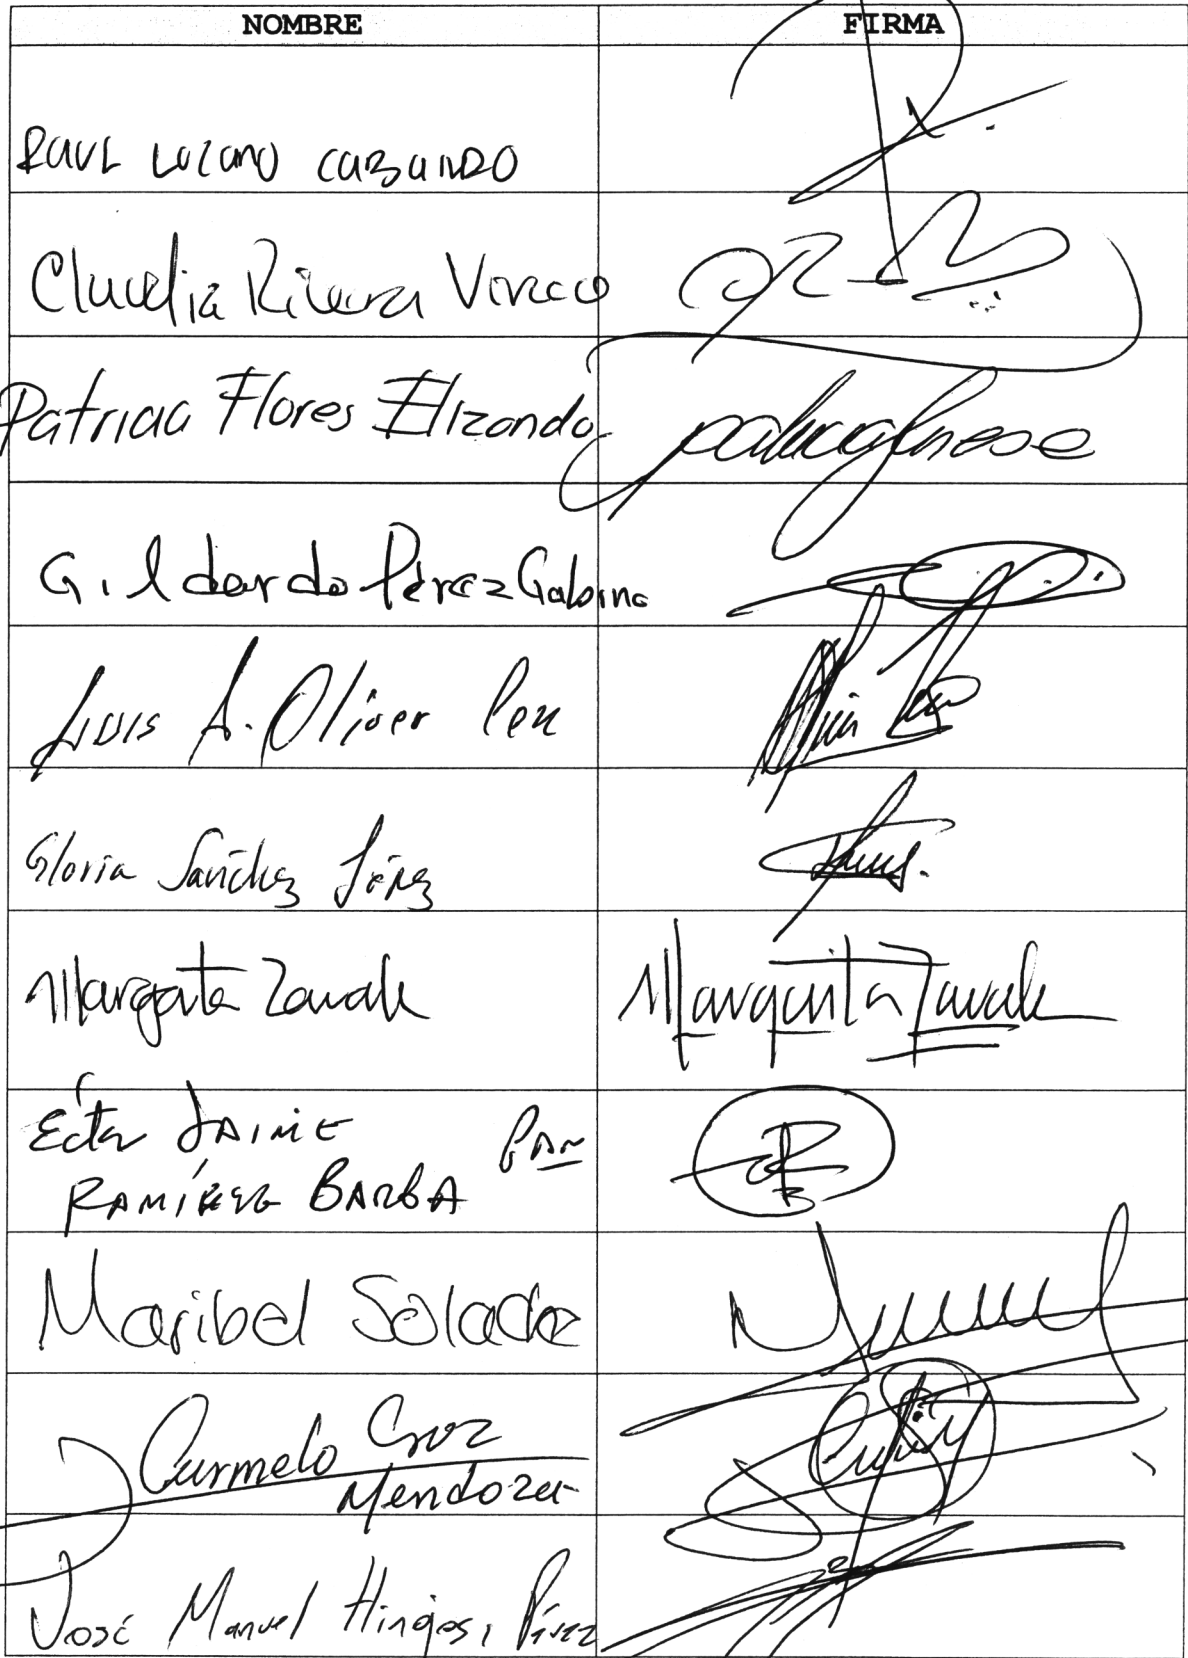 NOMBRE FIRMA
RAUL LOZANO CABALLERO
Claudia Rivera Vivanco
Patricia Flores Elizondo
Gildardo Pérez Gabino
Luis A. Oliver Cen
Gloria Sánchez López
Margarita Zavala Margarita Zavala
Ector JAIME PAN
RAMÍREZ BARBA
Maribel Solache
Carmelo Cruz
Mendoza
José Manuel Hinojosa Pérez